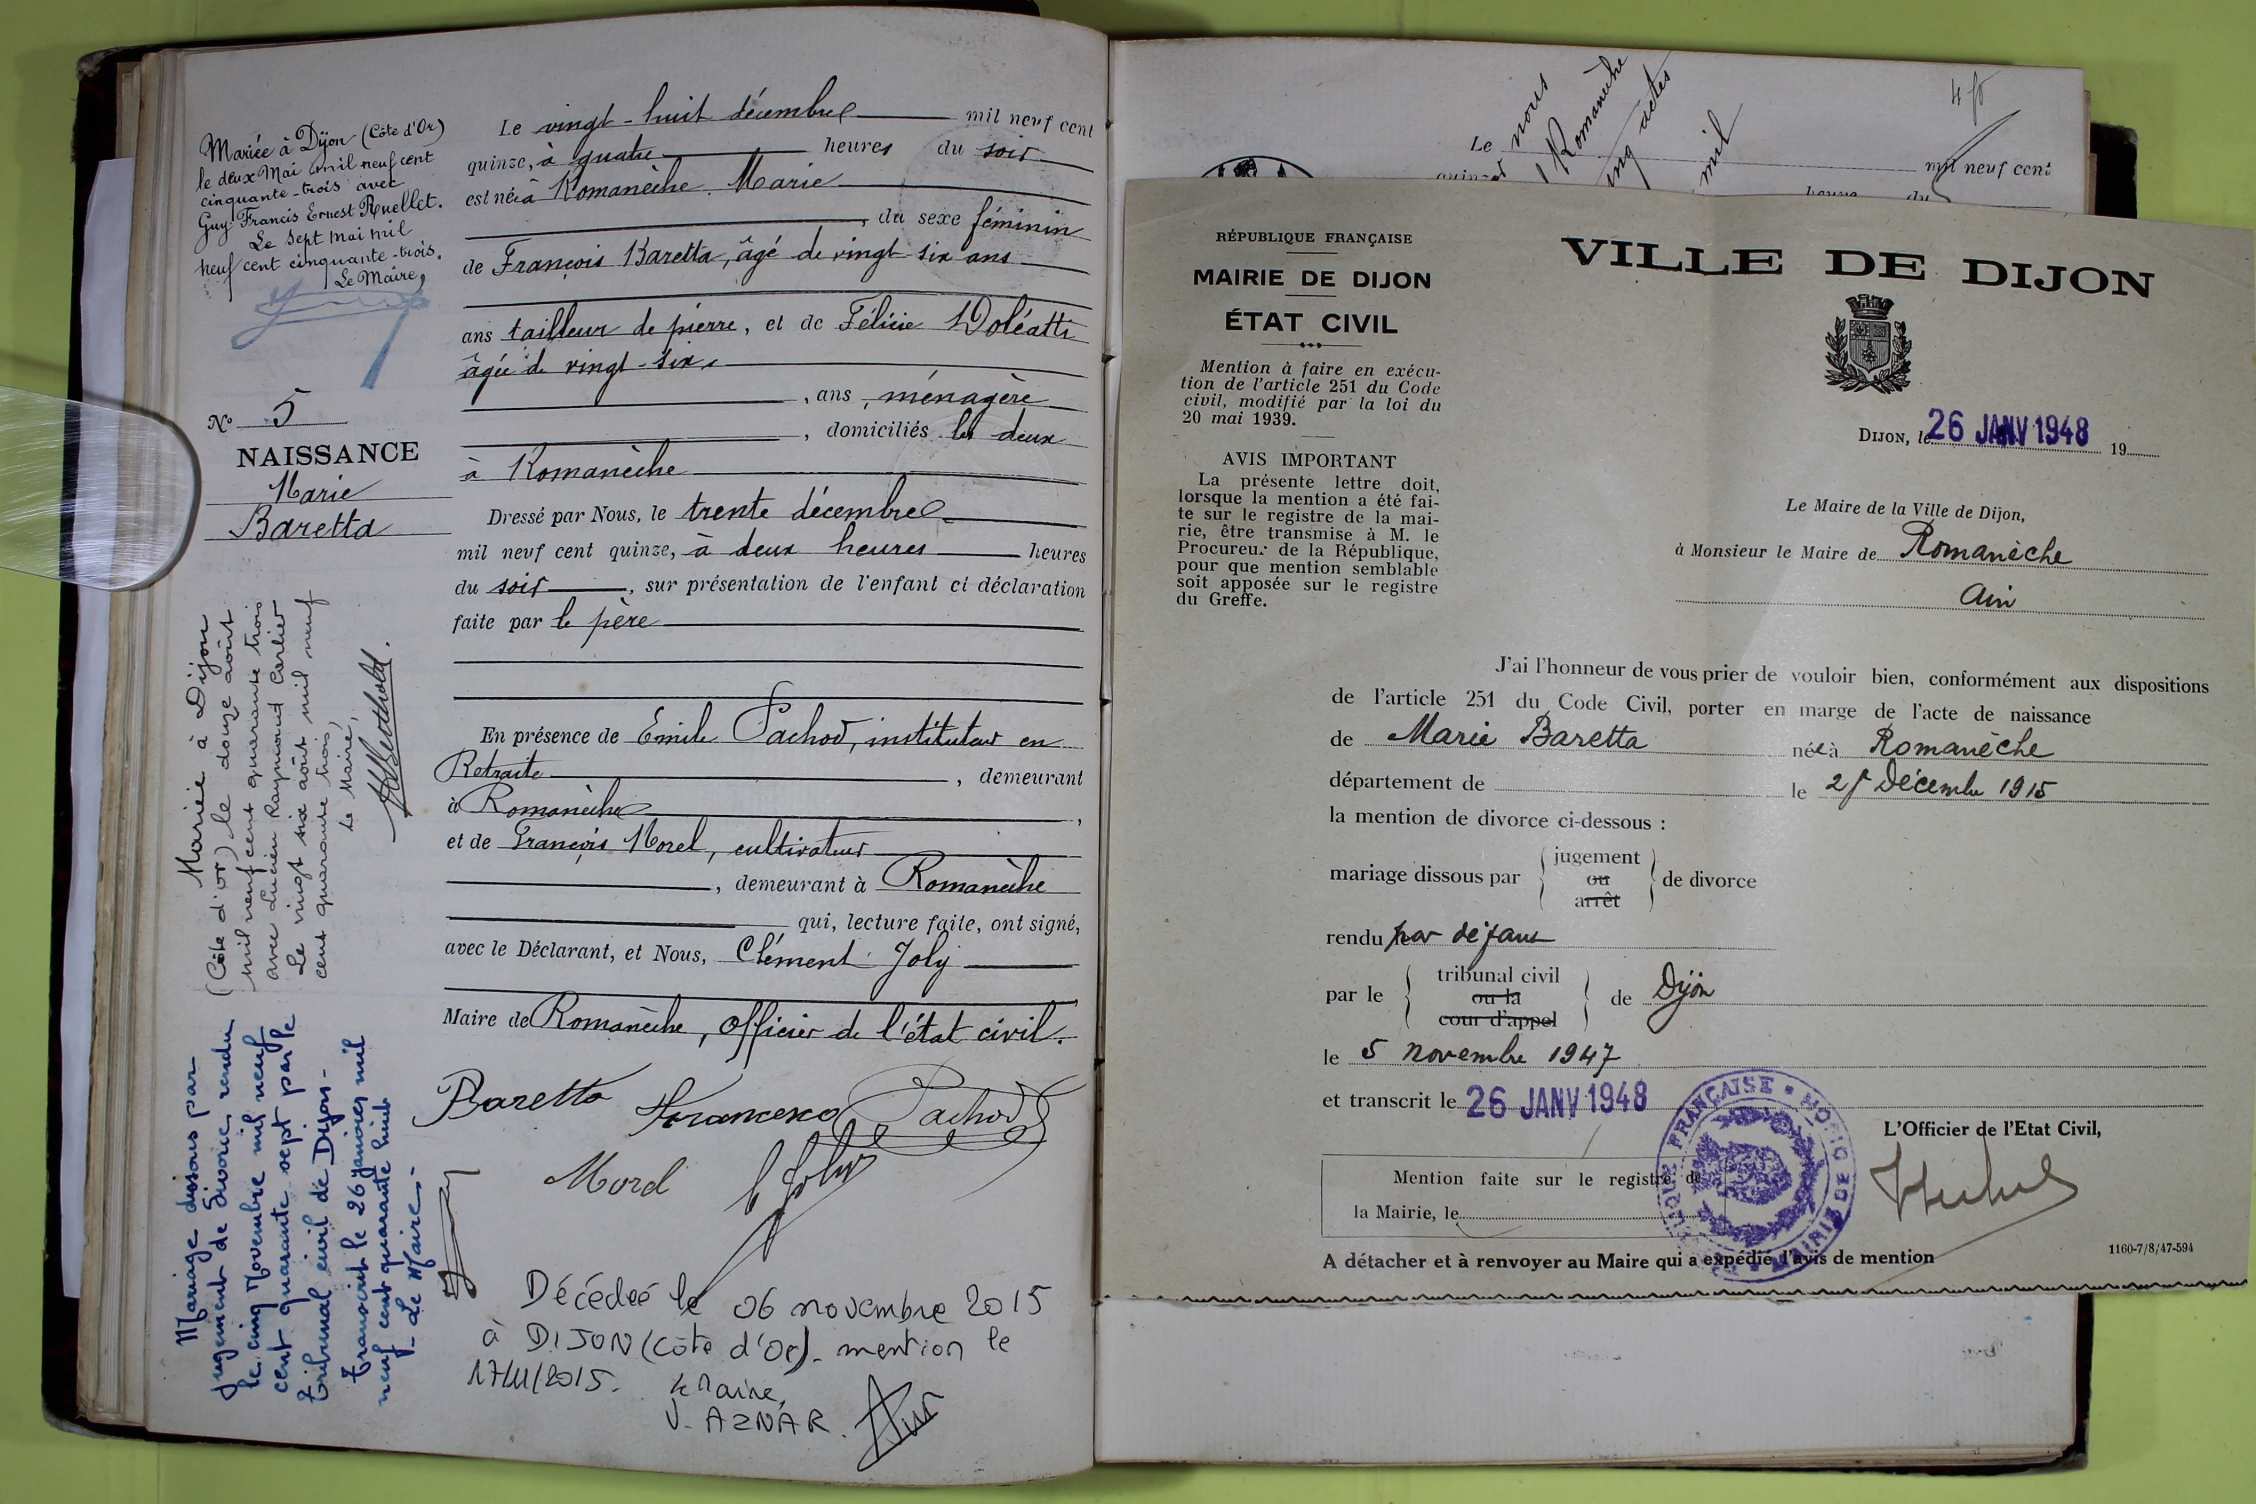 Mariée à Dijon (Côte d'Or)
le deux Mai mil neuf cent
cinquante-trois avec
Guy Francis Ernest Ruellet.
Le sept mai mil
neuf cent cinquante-trois.
Le Maire,
N° 5
NAISSANCE
Marie
Baretta
Mariée à Dijon
(Côte d'or) le douze août
mil neuf cent quarante trois
avec Lucien Raymond Carlier
Le vingt six août mil neuf
cent quarante trois,
Le Maire,
Mariage dissous par
jugement de Divorce rendu
le cinq Novembre mil neuf
cent quarante sept par le
tribunal civil de Dijon-
Transcrit le 26 janvier mil
neuf cent quarante huit
- Le Maire -
Le vingt-huit décembre mil neuf cent
quinze, à quatre heures du soir
est née à Romanèche Marie
, du sexe féminin
de François Baretta, âgé de vingt six ans
ans tailleur de pierre, et de Félicie Doléatti
âgée de vingt-six
, ans, ménagère
, domiciliés les deux
à Romanèche
Dressé par Nous, le trente décembre
mil neuf cent quinze, à deux heures heures
du soir, sur présentation de l'enfant et déclaration
faite par le père
En présence de Emile Pachod, instituteur en
Retraite, demeurant
à Romanèche,
et de François Morel, cultivateur
, demeurant à Romanèche
qui, lecture faite, ont signé,
avec le Déclarant, et Nous, Clément Joly
Maire de Romanèche, Officier de l'état civil.
Baretta Francesco Pachod
Morel C Joly
Décédée le 06 novembre 2015
à DIJON (Côte d'Or). mention le
17/11/2015. Le Maire,
V. AZNAR.
Le nous mil neuf cent
Romanèche
actes
mil
RÉPUBLIQUE FRANÇAISE
MAIRIE DE DIJON
ÉTAT CIVIL
Mention à faire en exécu-
tion de l'article 251 du Code
civil, modifié par la loi du
20 mai 1939.
AVIS IMPORTANT
La présente lettre doit,
lorsque la mention a été fai-
te sur le registre de la mai-
rie, être transmise à M. le
Procureur de la République,
pour que mention semblable
soit apposée sur le registre
du Greffe.
VILLE DE DIJON
DIJON, le 26 JANV 1948 19
Le Maire de la Ville de Dijon,
à Monsieur le Maire de Romanèche
Ain
J'ai l'honneur de vous prier de vouloir bien, conformément aux dispositions
de l'article 251 du Code Civil, porter en marge de l'acte de naissance
de Marie Baretta née à Romanèche
département de le 28 Décembre 1915
la mention de divorce ci-dessous :
mariage dissous par { jugement ou arrêt } de divorce
rendu par défaut
par le { tribunal civil ou la cour d'appel } de Dijon
le 5 novembre 1947
et transcrit le 26 JANV 1948
L'Officier de l'Etat Civil,
Mention faite sur le registre de
la Mairie, le
A détacher et à renvoyer au Maire qui a expédié l'avis de mention
1160-7/8/47-594